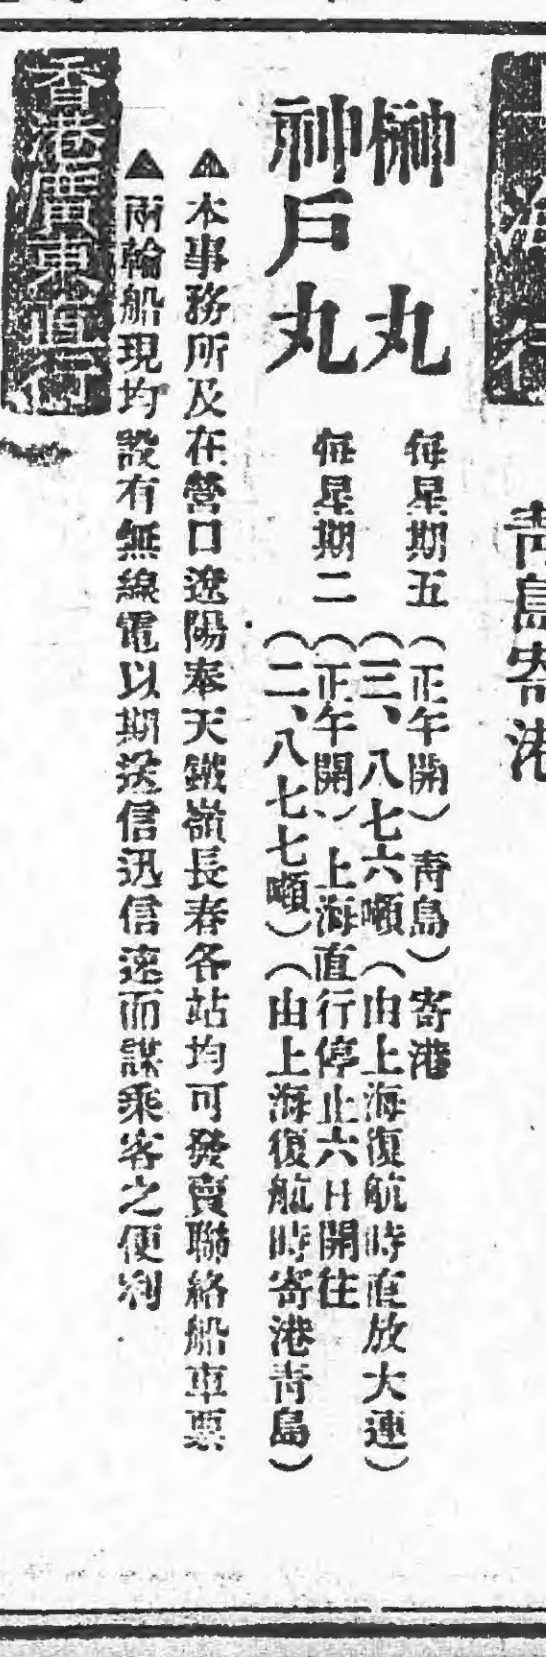 青島寄港
榊丸
每星期五（正午開）青島）寄港
（三、八七六噸（由上海復航時直放大連）
神戶丸
每星期二（正午開）上海直行停止六日開往
（二、八七七噸）（由上海復航時寄港青島）
▲本事務所及在營口遼陽奉天鐵嶺長春各站均可發賣聯絡船車票
▲兩輪船現均設有無線電以期送信迅信速而謀乘客之便利
香港廣東直行